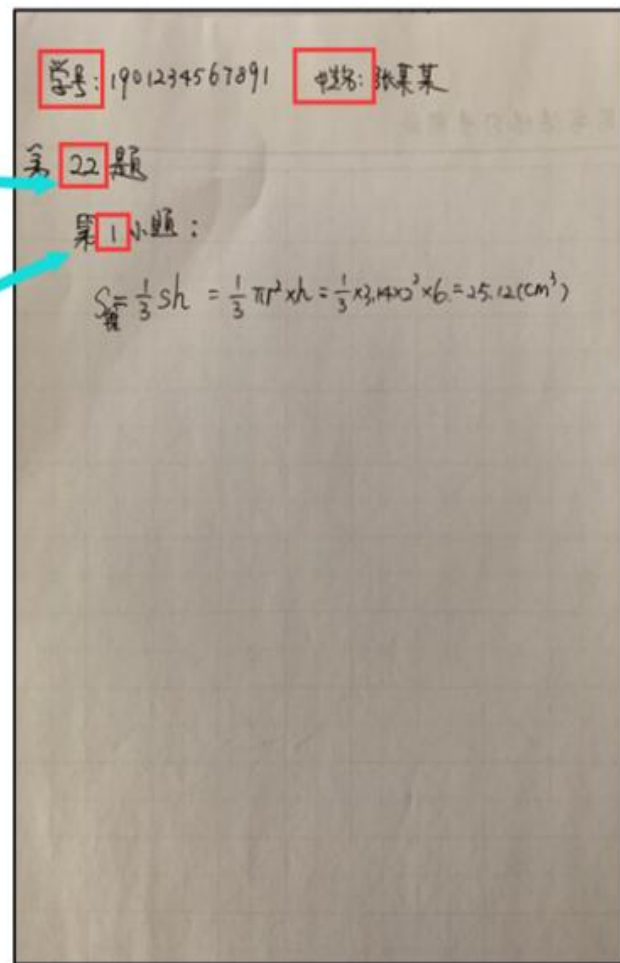 学号:1901234567891 姓名:张某某
第22题
第1小题:
S锥=1/3 sh = 1/3 πr²×h = 1/3×3.14×2²×6.=25.12(cm³)